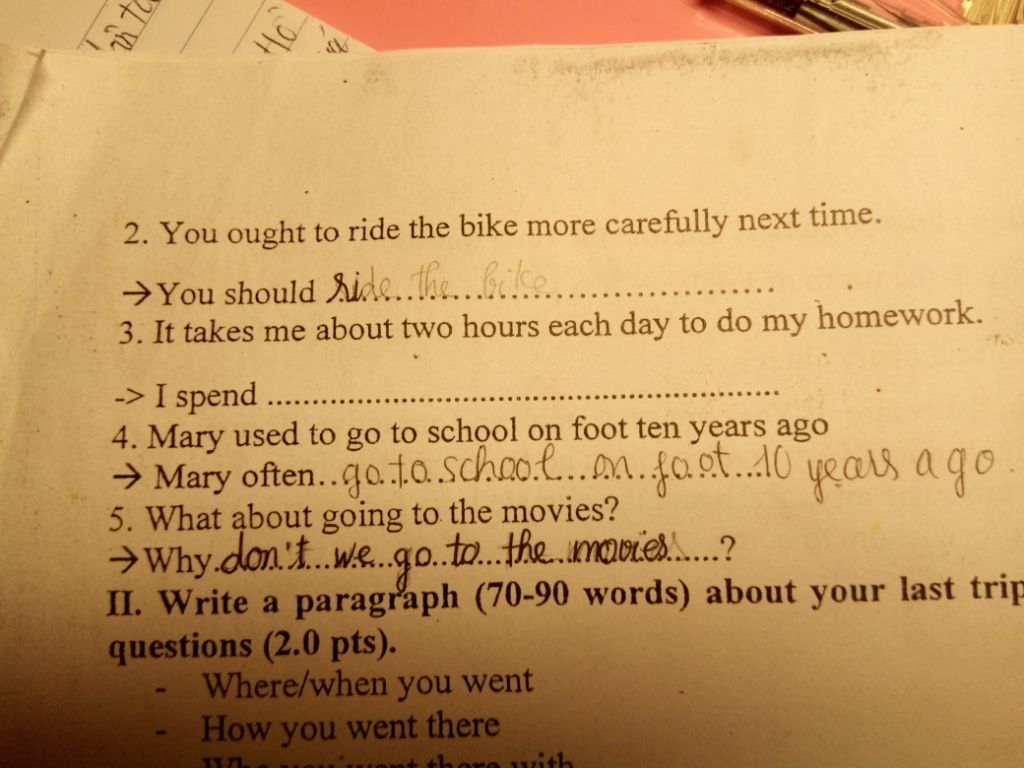 2. You ought to ride the bike more carefully next time.
→ You should ride the bike
3. It takes me about two hours each day to do my homework.
-> I spend ........................................................
4. Mary used to go to school on foot ten years ago
→ Mary often..go to school on foot 10 years ago.
5. What about going to the movies?
→ Why don't we go to the movies......?
II. Write a paragraph (70-90 words) about your last trip
questions (2.0 pts).
- Where/when you went
- How you went there
you went there with